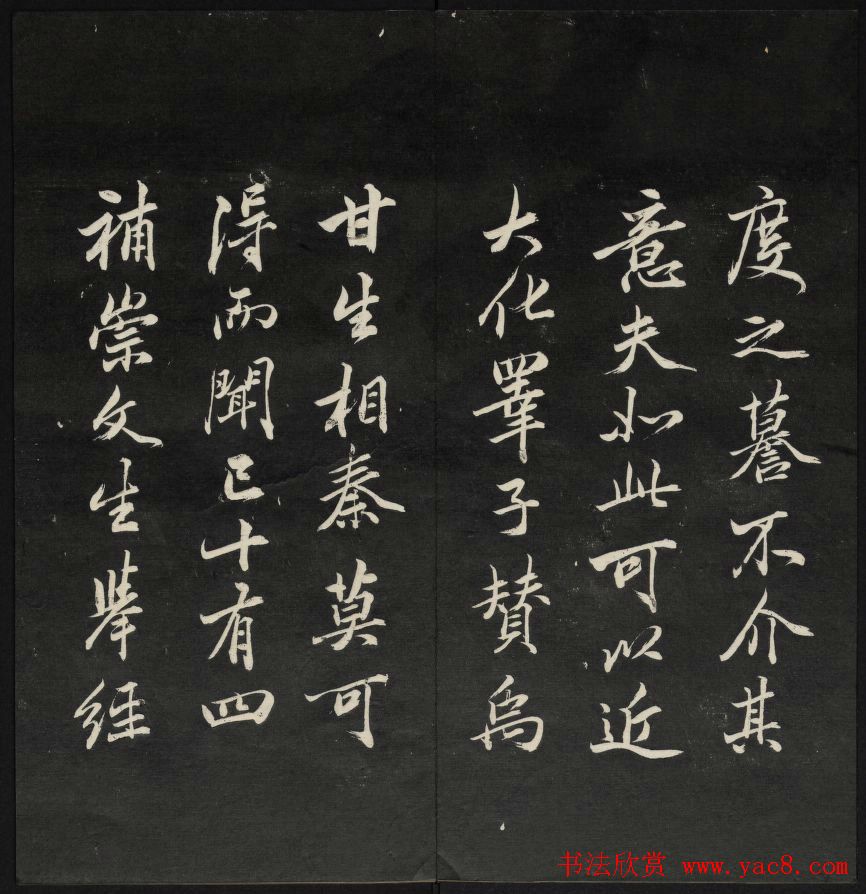 度之譽不介其
意夫如此可以近
大化睪子贊禹
甘生相秦莫可
得而聞已十有四
補崇文生舉經
书法欣赏 www.yac8.com